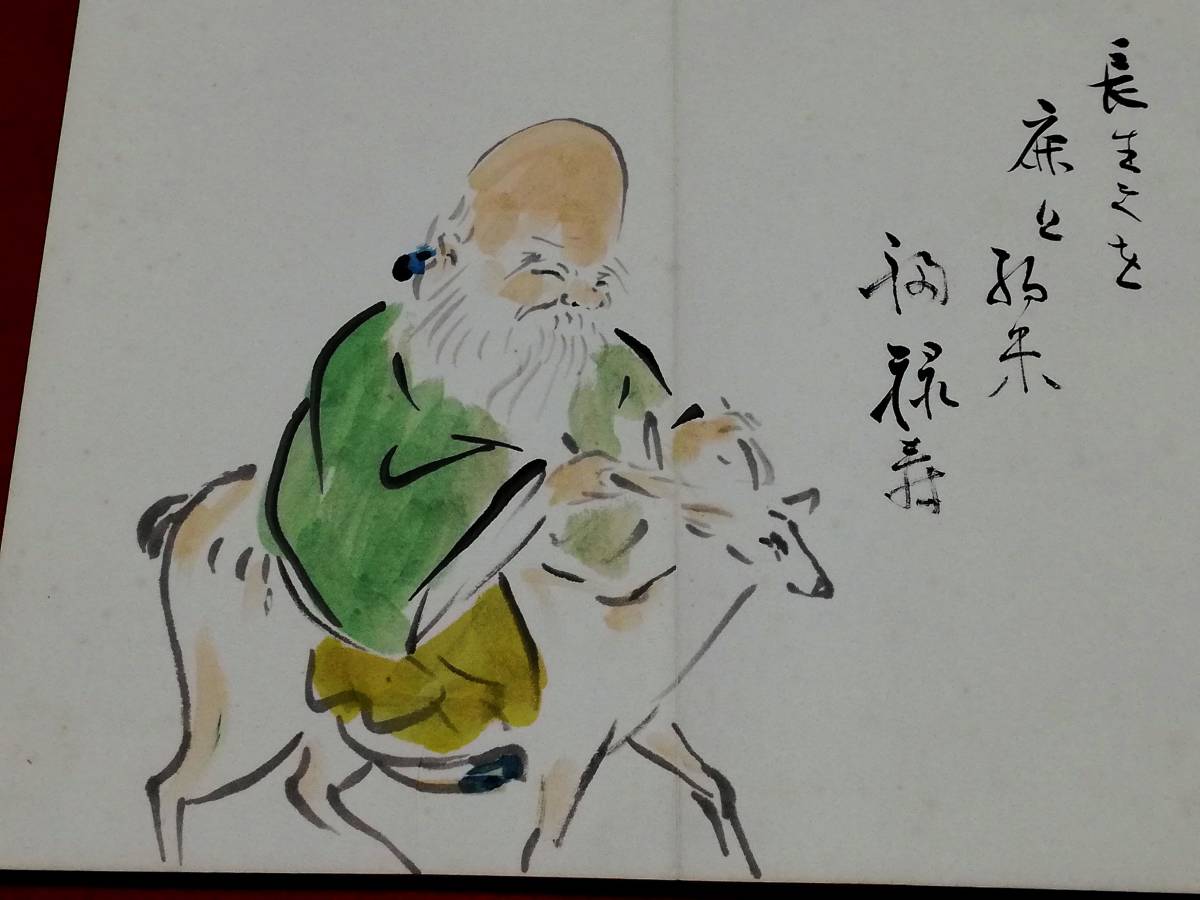 長生きを
鹿と約束
福禄寿